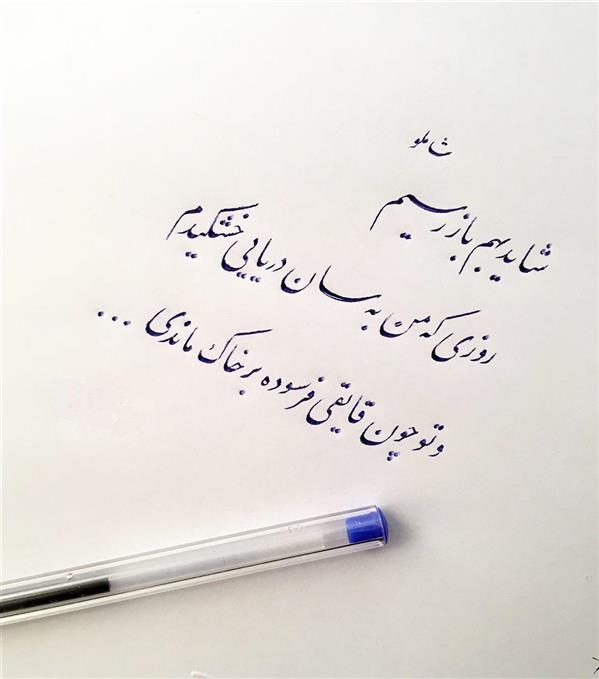 شاملو
شاید بهم باز رسیم
روزی که من به سان دریایی خشکیدم
و تو چون قایقی فرسوده بر خاک ماندی ...